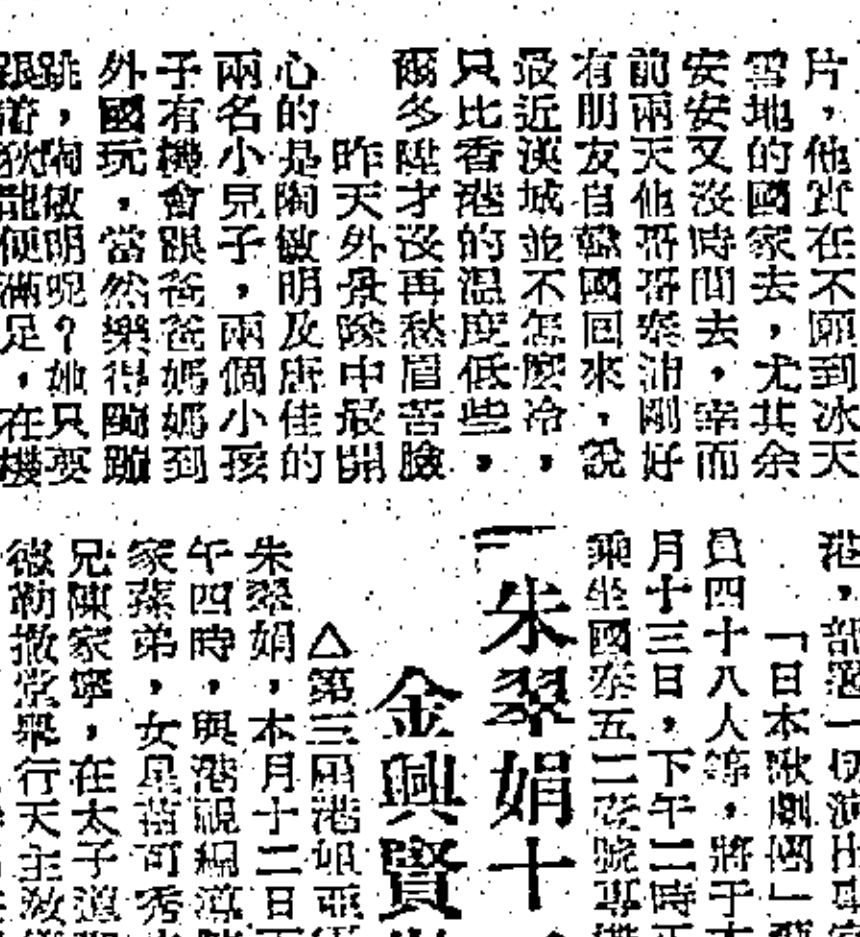 片，他實在不願到冰天
雪地的國家去，尤其余
安安又沒時間去，幸而
前兩天他哥哥秦沛剛好
有朋友自韓國回來，說
最近漢城並不怎麼冷，
只比香港的溫度低些，
爾冬陞才沒再愁眉苦臉
昨天外景隊中最開
心的是陶敏明及唐佳的
兩名小兒子，兩個小孩
子有機會跟爸爸媽媽到
外國玩，當然樂得
跳，陶敏明呢？她只要
跟着狄龍便滿足，在機
港，部署一切演出專
「日本歌劇團」
員四十八人等，將于本
月十三日，下午二時正
乘坐國泰五二號專機
朱翠娟十
金興賢
△第三屆港姐亞
朱翠娟，本月十二日下
午四時，與港視編導陳
家蓀弟，女星苗可秀
兄陳家寧，在太子道
德勒撒堂舉行天主教